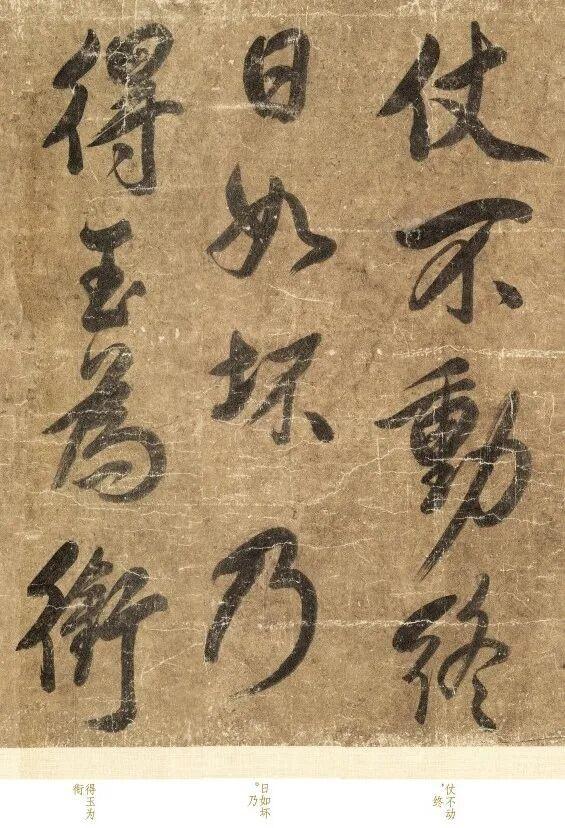 仗不動終
日如坏乃
得玉為衡
仗不动，终
日如坏。乃
得玉为衡